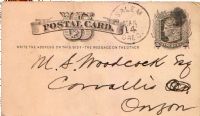 POSTAL CARD
WRITE THE ADDRESS ON THIS SIDE - THE MESSAGE ON THE OTHER
SALEM
14
M. S. Woodcock Esq
Corvallis
Oregon